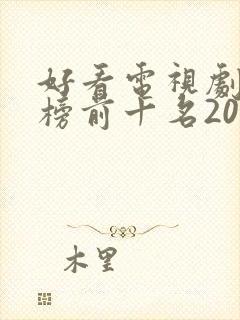 好看電視劇
榜前十名20
木里